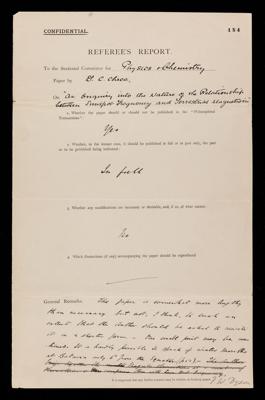 CONFIDENTIAL.
184
REFEREE'S REPORT.
To the Sectional Committee for Physics & Chemistry
Paper by Dr. C. Chree
On "An Enquiry into the Nature of the Relationship
between Sunspot Frequency and Terrestrial Magnetism"
1. Whether the paper should or should not be published in the "Philosophical
Transactions":
Yes
2. Whether, in the former case, it should be published in full or in part only, the part
or to be published being indicated:
In full
3. Whether any modifications are necessary or desirable, and, if so, of what nature:
No
4. Which illustrations (if any) accompanying the paper should be reproduced:
General Remarks. This paper is somewhat more lengthy
than necessary but not, I think, to such an
extent that the author should be asked to recast
it in a shorter form. One small point may be men-
tioned. It is hardly possible to speak of winter months
at Batavia only 6° from the Equator